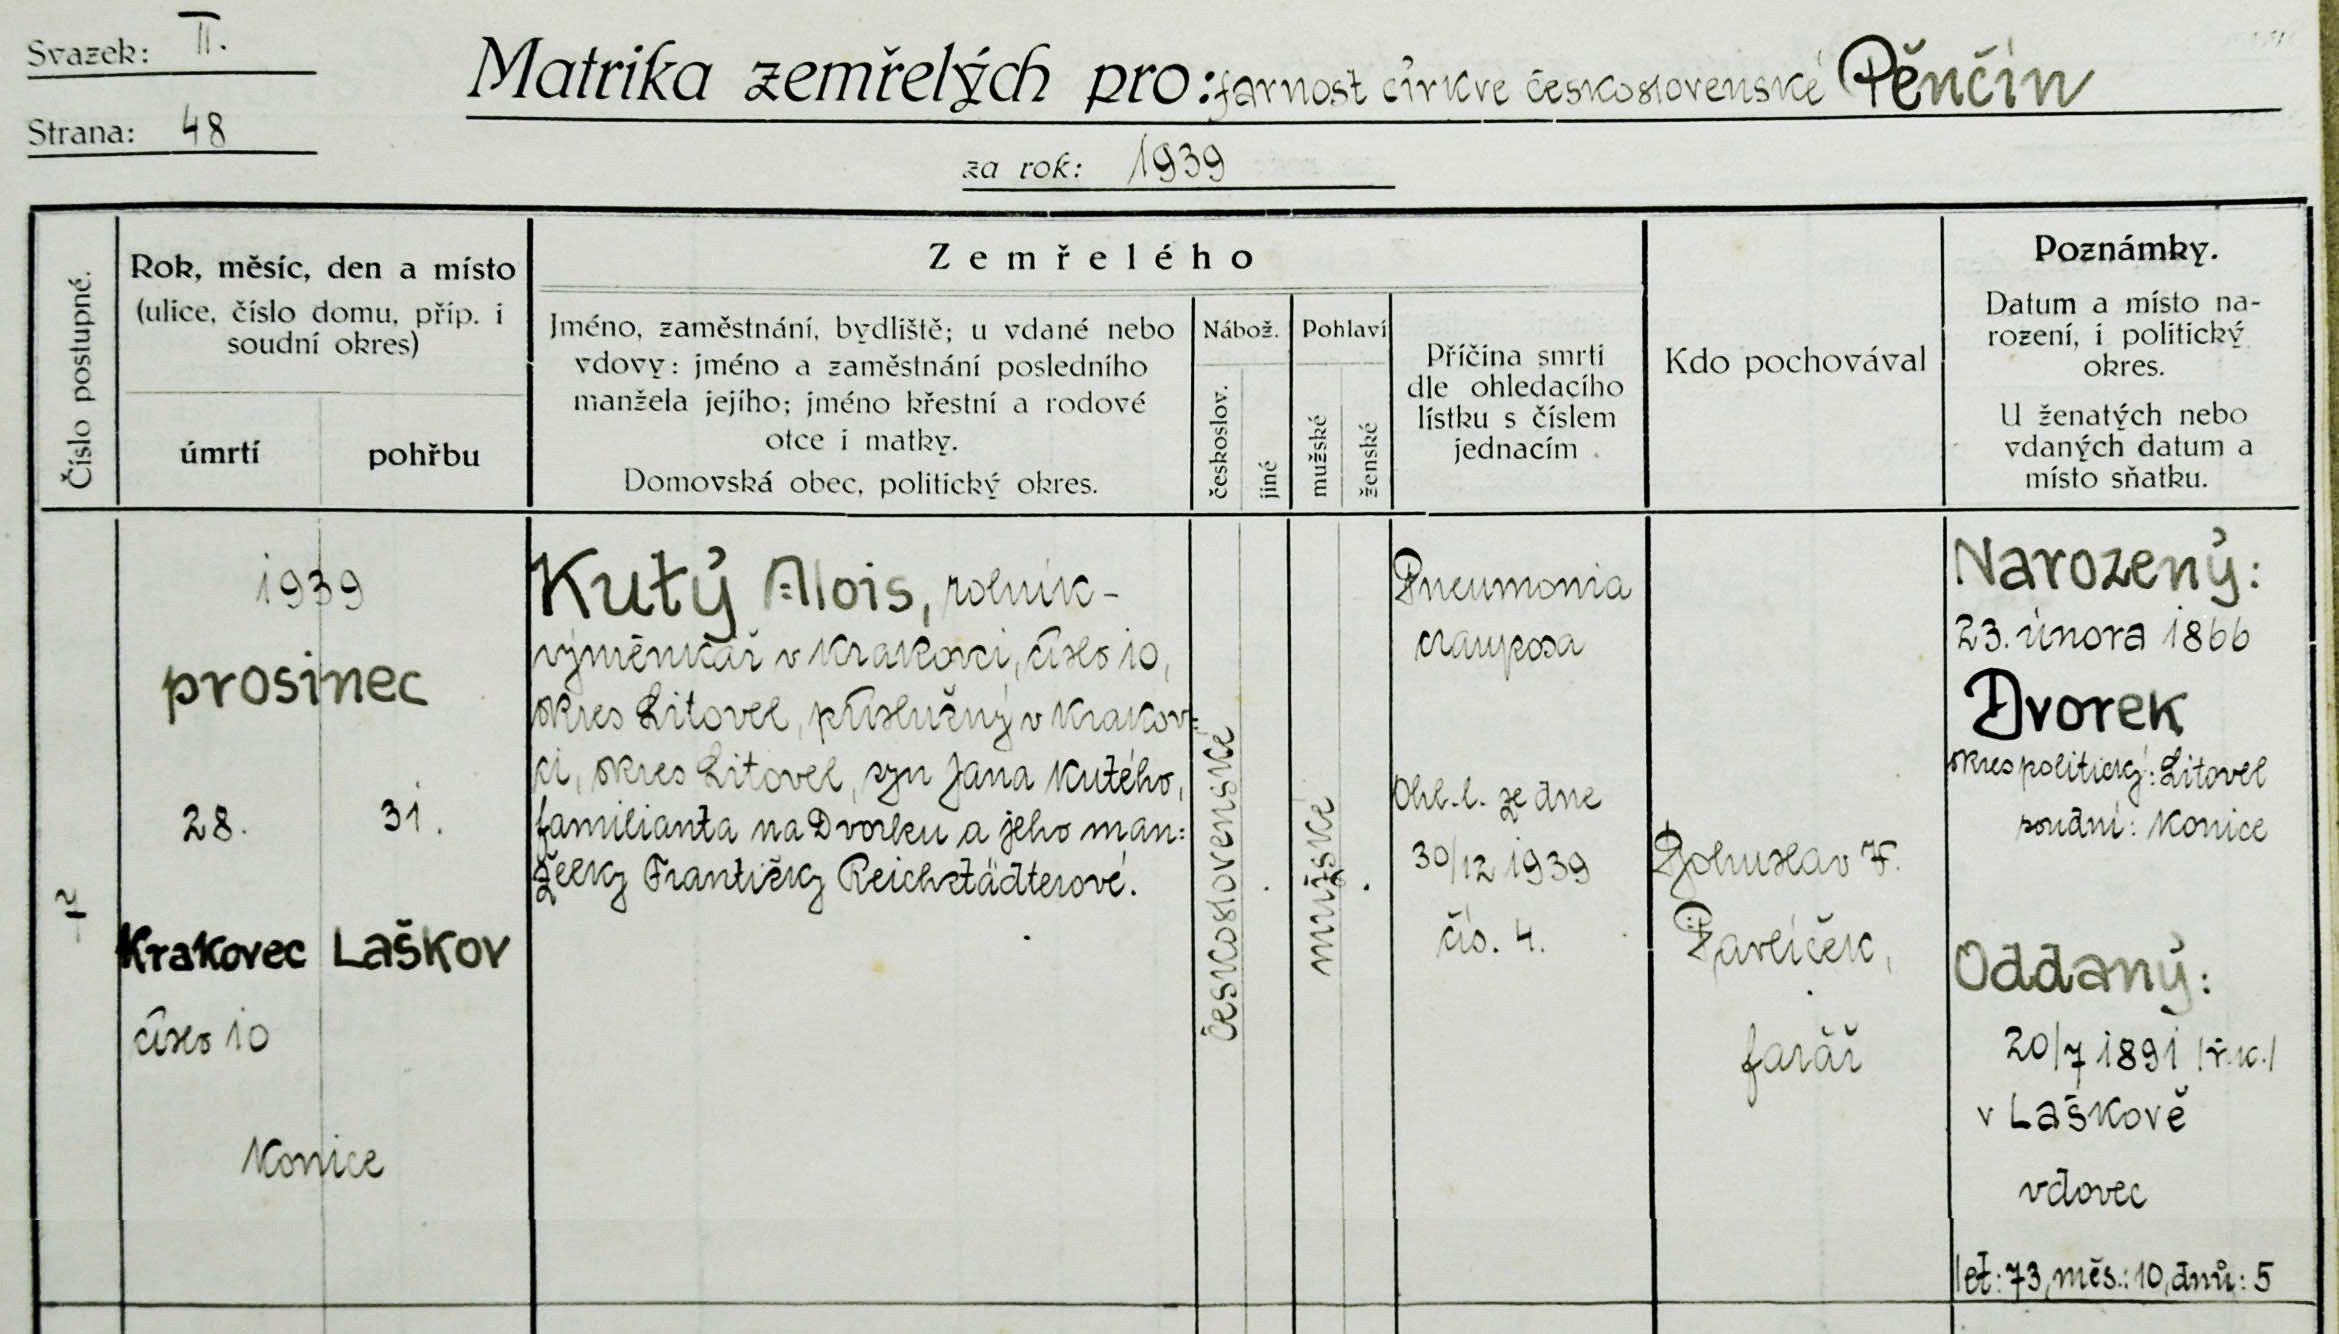 Svazek: II.
Strana: 48
Matrika zemřelých pro: farnost církve československé Pěnčín
za rok: 1939
Číslo postupné.
Rok, měsíc, den a místo
(ulice, číslo domu, příp. i
soudní okres)
úmrtí
pohřbu
Zemřelého
Jméno, zaměstnání, bydliště; u vdané nebo
vdovy: jméno a zaměstnání posledního
manžela jejího; jméno křestní a rodové
otce i matky.
Domovská obec, politický okres.
Nábož.
českoslov.
jiné
Pohlaví
mužské
ženské
Příčina smrti
dle ohledacího
lístku s číslem
jednacím
Kdo pochovával
Poznámky.
Datum a místo na-
rození, i politický
okres.
U ženatých nebo
vdaných datum a
místo sňatku.
1939
prosinec
28. 31.
Krakovec Laškov
číslo 10
Konice
Kutý Alois, rolník-
výměnkář v Krakovci, číslo 10,
okres Litovel, příslušný v Krakov=
ci, okres Litovel, syn Jana Kutého,
familianta na Dvorku a jeho man=
želky Františky Reichstädterové.
československé
mužské
Pneumonia
crouposa
Ohl. l. ze dne
30/12 1939
čís. 4.
Bohuslav F.
Pavlíček,
farář
Narozený:
23. února 1866
Dvorek
okres politický: Litovel
soudní: Konice
Oddaný:
20/7 1891 /ř.k./
v Laškově
vdovec
let: 73, měs.: 10, dnů: 5